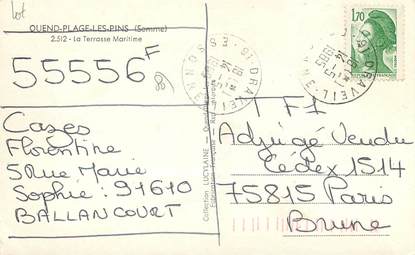 lot
QUEND-PLAGE-LES-PINS (Somme)
2.512 - La Terrasse Maritime
55556F
Cazes
Florentine
5 Rue Marie
Sophie : 91610
BALLANCOURT
Collection LUCYLAINE
1,70
DRAVEIL
ESSONNE
1985
TF1
Adjugé Vendu
Cédex 1514
75815 Paris
Brune